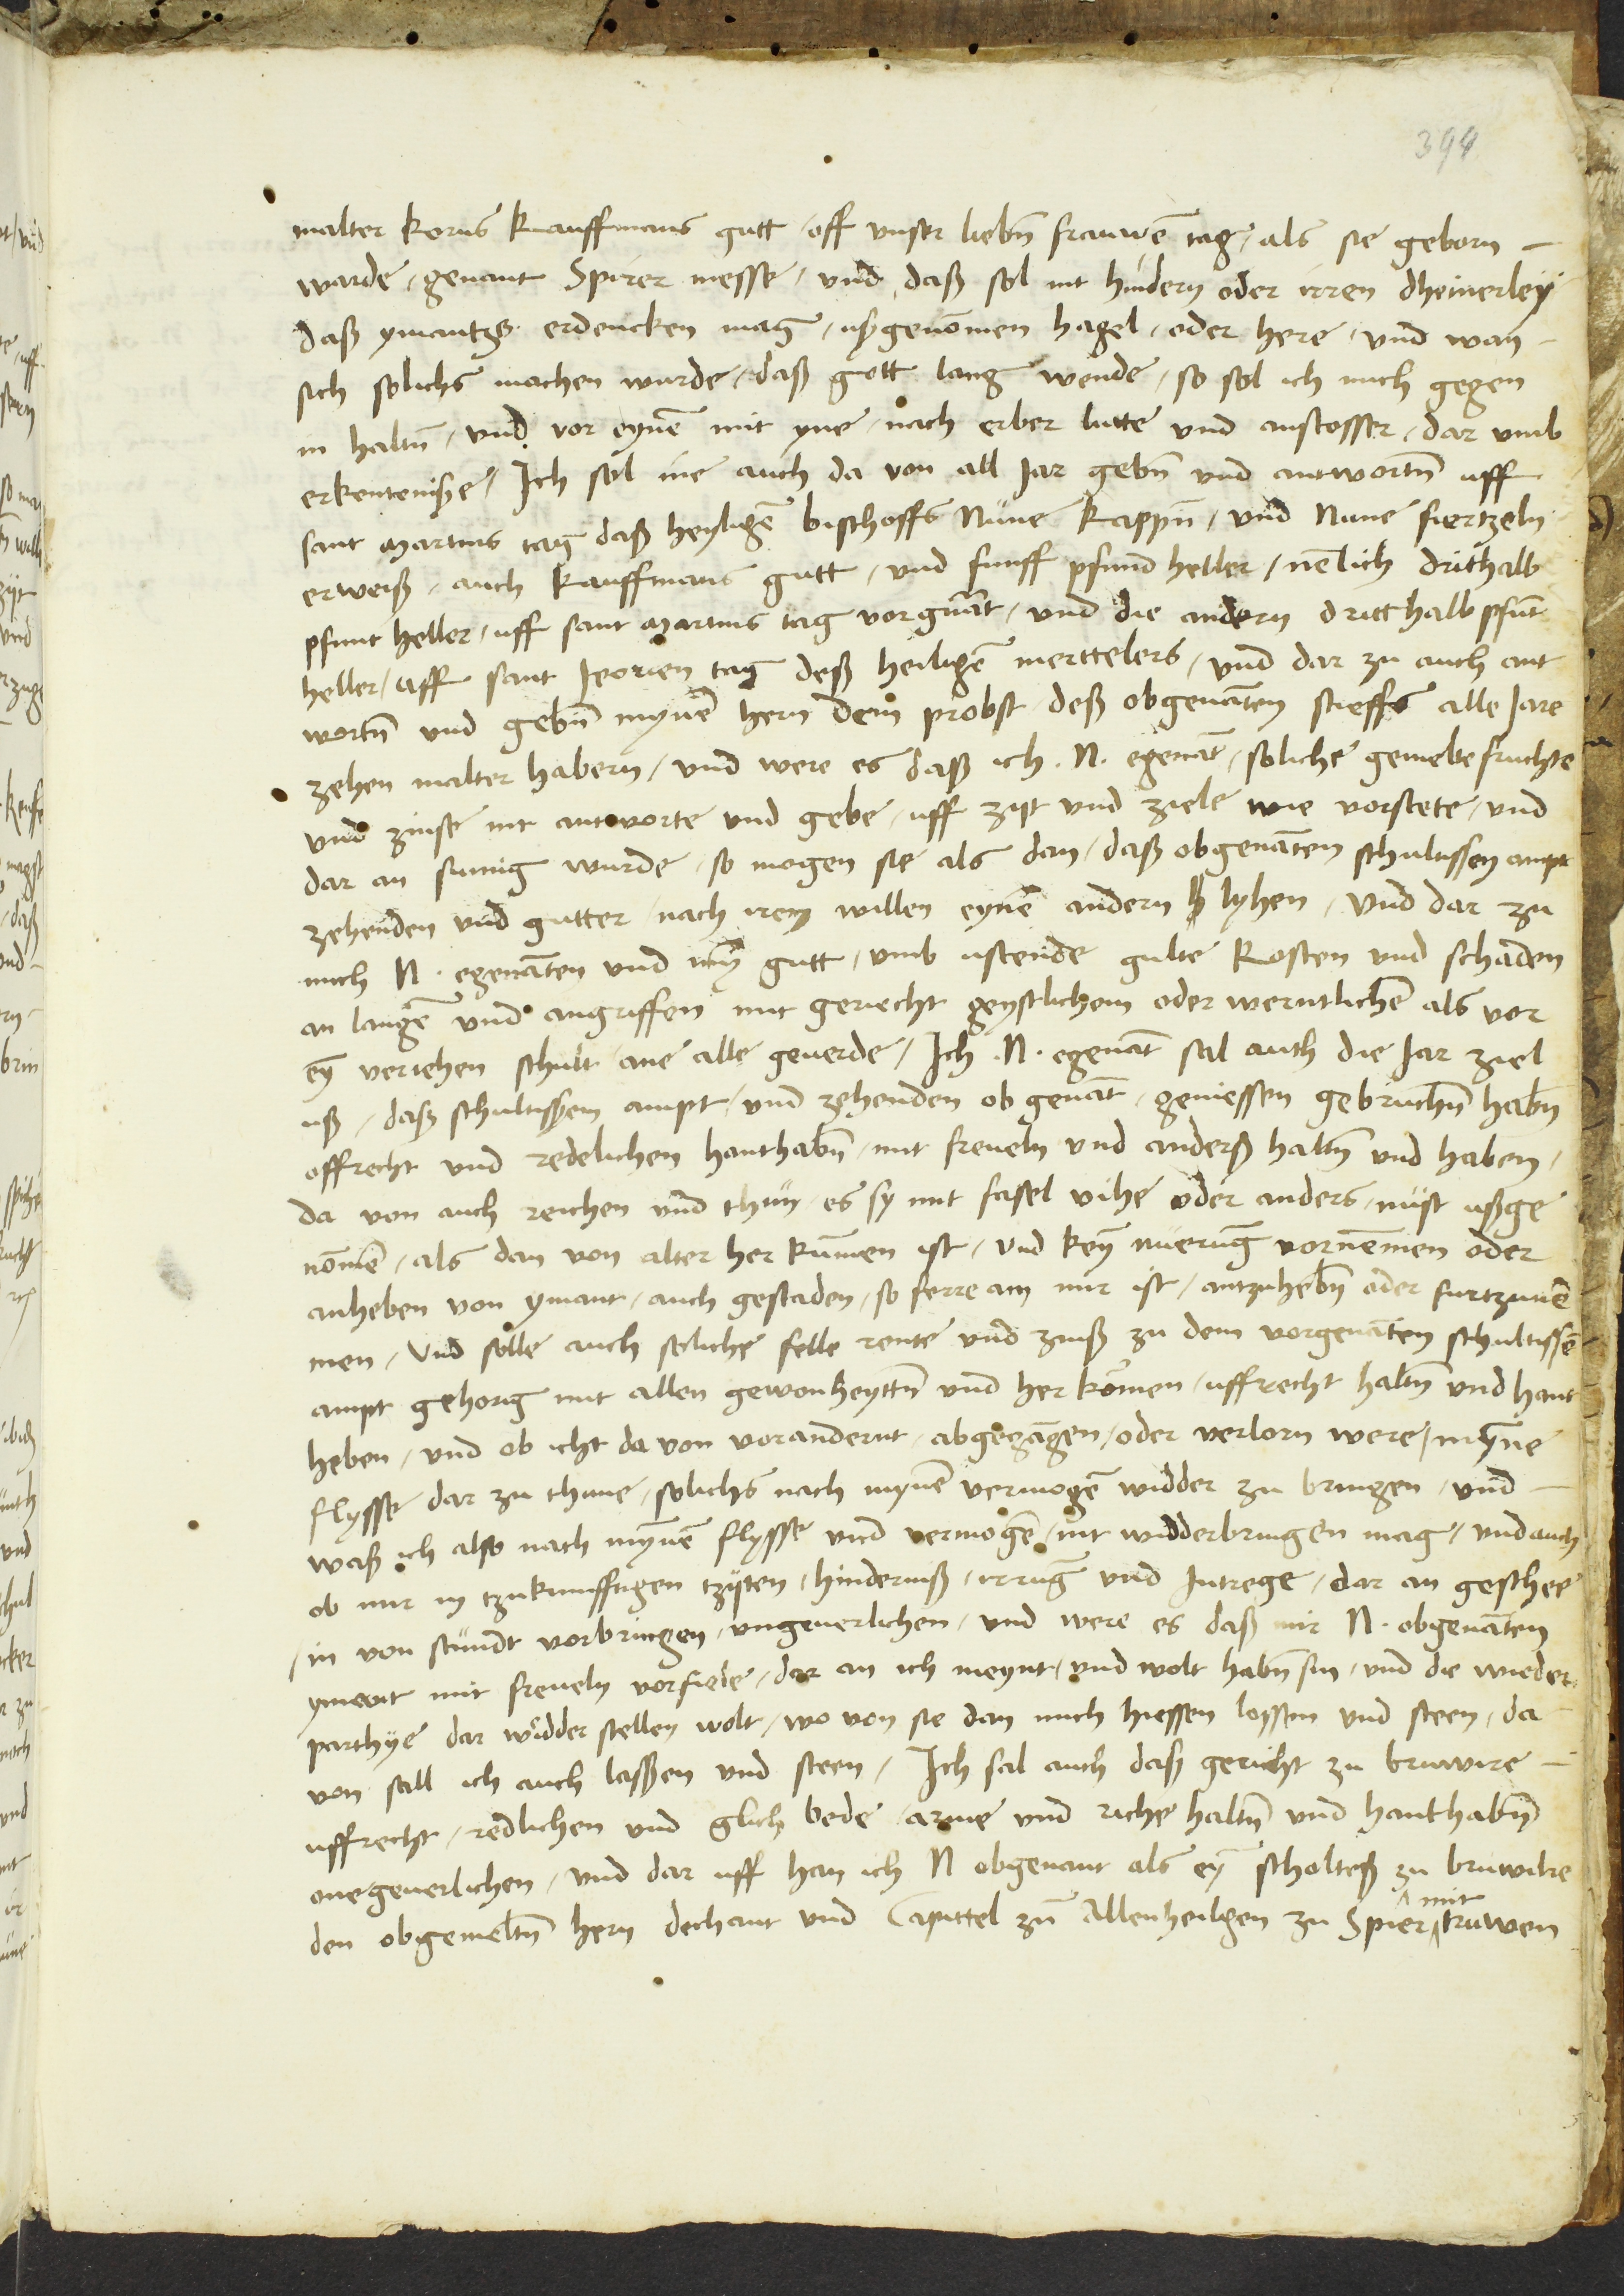 394
malter korns kauffmans gutt / off unser liebn̄ frauwē tag / als sie geborn –
warde / genant Spirer messe / und daß sol nit hindern oder irren dheinerley
daß ymantz erdencken mag / ußgenōmen hagel / oder here / und wan –
sich solichs machen wurde / daß gott lang wende / so sol ich mich gegen
in haltn̄ / und vor eynē mit yne / nach erber lutte und anstosser / dar umb
erkentenisße / Ich sol ine auch da von all Jar gebn̄ und antwortn̄ uff
sant martins tag daß heyligē bischoffs Nüne kappn̄ / und Nune fiertzeln
erweiß / auch kauffmans gutt / und funff pfund heller / nēlich drithalb
pfunt heller / uff sant martins tag vorgnāt / und die andern dritthalb pfūt
heller / uff sant Jeorien tag deß heiligē merttelers / und dar zu auch ant
wortn̄ und gebn̄ mynē hern dem probst deß obgenātten stieffs alle Jare
zehen malter habern / und were es daß ich .N. egenāt / soliche gemelte fruchte
und zinse nit antworte und gebe / uff zijt und ziele wie vorstete / und
dar an sumig wurde / so mogen sie als dan / daß obgenāten schultissen ampt
zehenden und gutter / nach irem willen eynē andern lyhen / Und dar zu
mich N. egenāten und mȳ gutt / umb ustende gulte kosten und schaden
an langē und angriffen mit geriecht geystlichem oder werntlichē als vor
eȳ veriehen schult / ane alle geverde / Ich .N. egenāt sal auch die Jar ziel
uß / daß schultissen ampt / und zehenden ob genāt / geniessen gebruchn̄ habn̄
offrecht und redelichen hanthabn̄ / mit freveln und anderß haltn̄ und haben /
da von auch reichen und thun / es sy mit fasel vihe oder anders / nüst ußge
nōmē / als dan von alter her kūmen ist / und keȳ nuerūg vornēmen oder
anheben von ymant / auch gestaden / so ferre am mir ist / antzuhebn̄ oder furtzunē
men / Und solle auch soliche felle rente und zinß zu dem vorgenāten schultissē
ampt gehorig mit allen gewonheyttn̄ und her kōmen / uffrecht haltn̄ und hant
heben / und ob icht da von vorandernt / abgegāgen / oder verlorn were / mȳne
flysse dar zu thune / solichs nach mynē vermogē widder zu bringen / und –
waß ich also nach mȳnē flysse und vermogē / nit widderbringen mag / und auch
ob mir in tzukunfftigen tzijten / hinderniß / irrūg und Intrege / dar an geschee
/ in von stundt vorbringen / ungeverlichen / und were es daß mir N. obgenāten
ymant mit freveln vorfiele / dar an ich meynt / und wolt habn̄ sin / und die wieder
parthye dar widder stellen wolt / wo von sie dan mich hiessen lossen und steen / da
von sall ich auch lassen und steen / Ich sal auch daß gericht zu bruwire –
uffrecht / redlichen und glich bede / arme und riche haltn̄ und hanthabn̄
onegeverlichen / und dar uff han ich N obgenant als eȳ scholteß zu bruwilre
den obgemeltn̄ hern dechant und Capittel zū Allenheilgen zu Spier / mit truwen